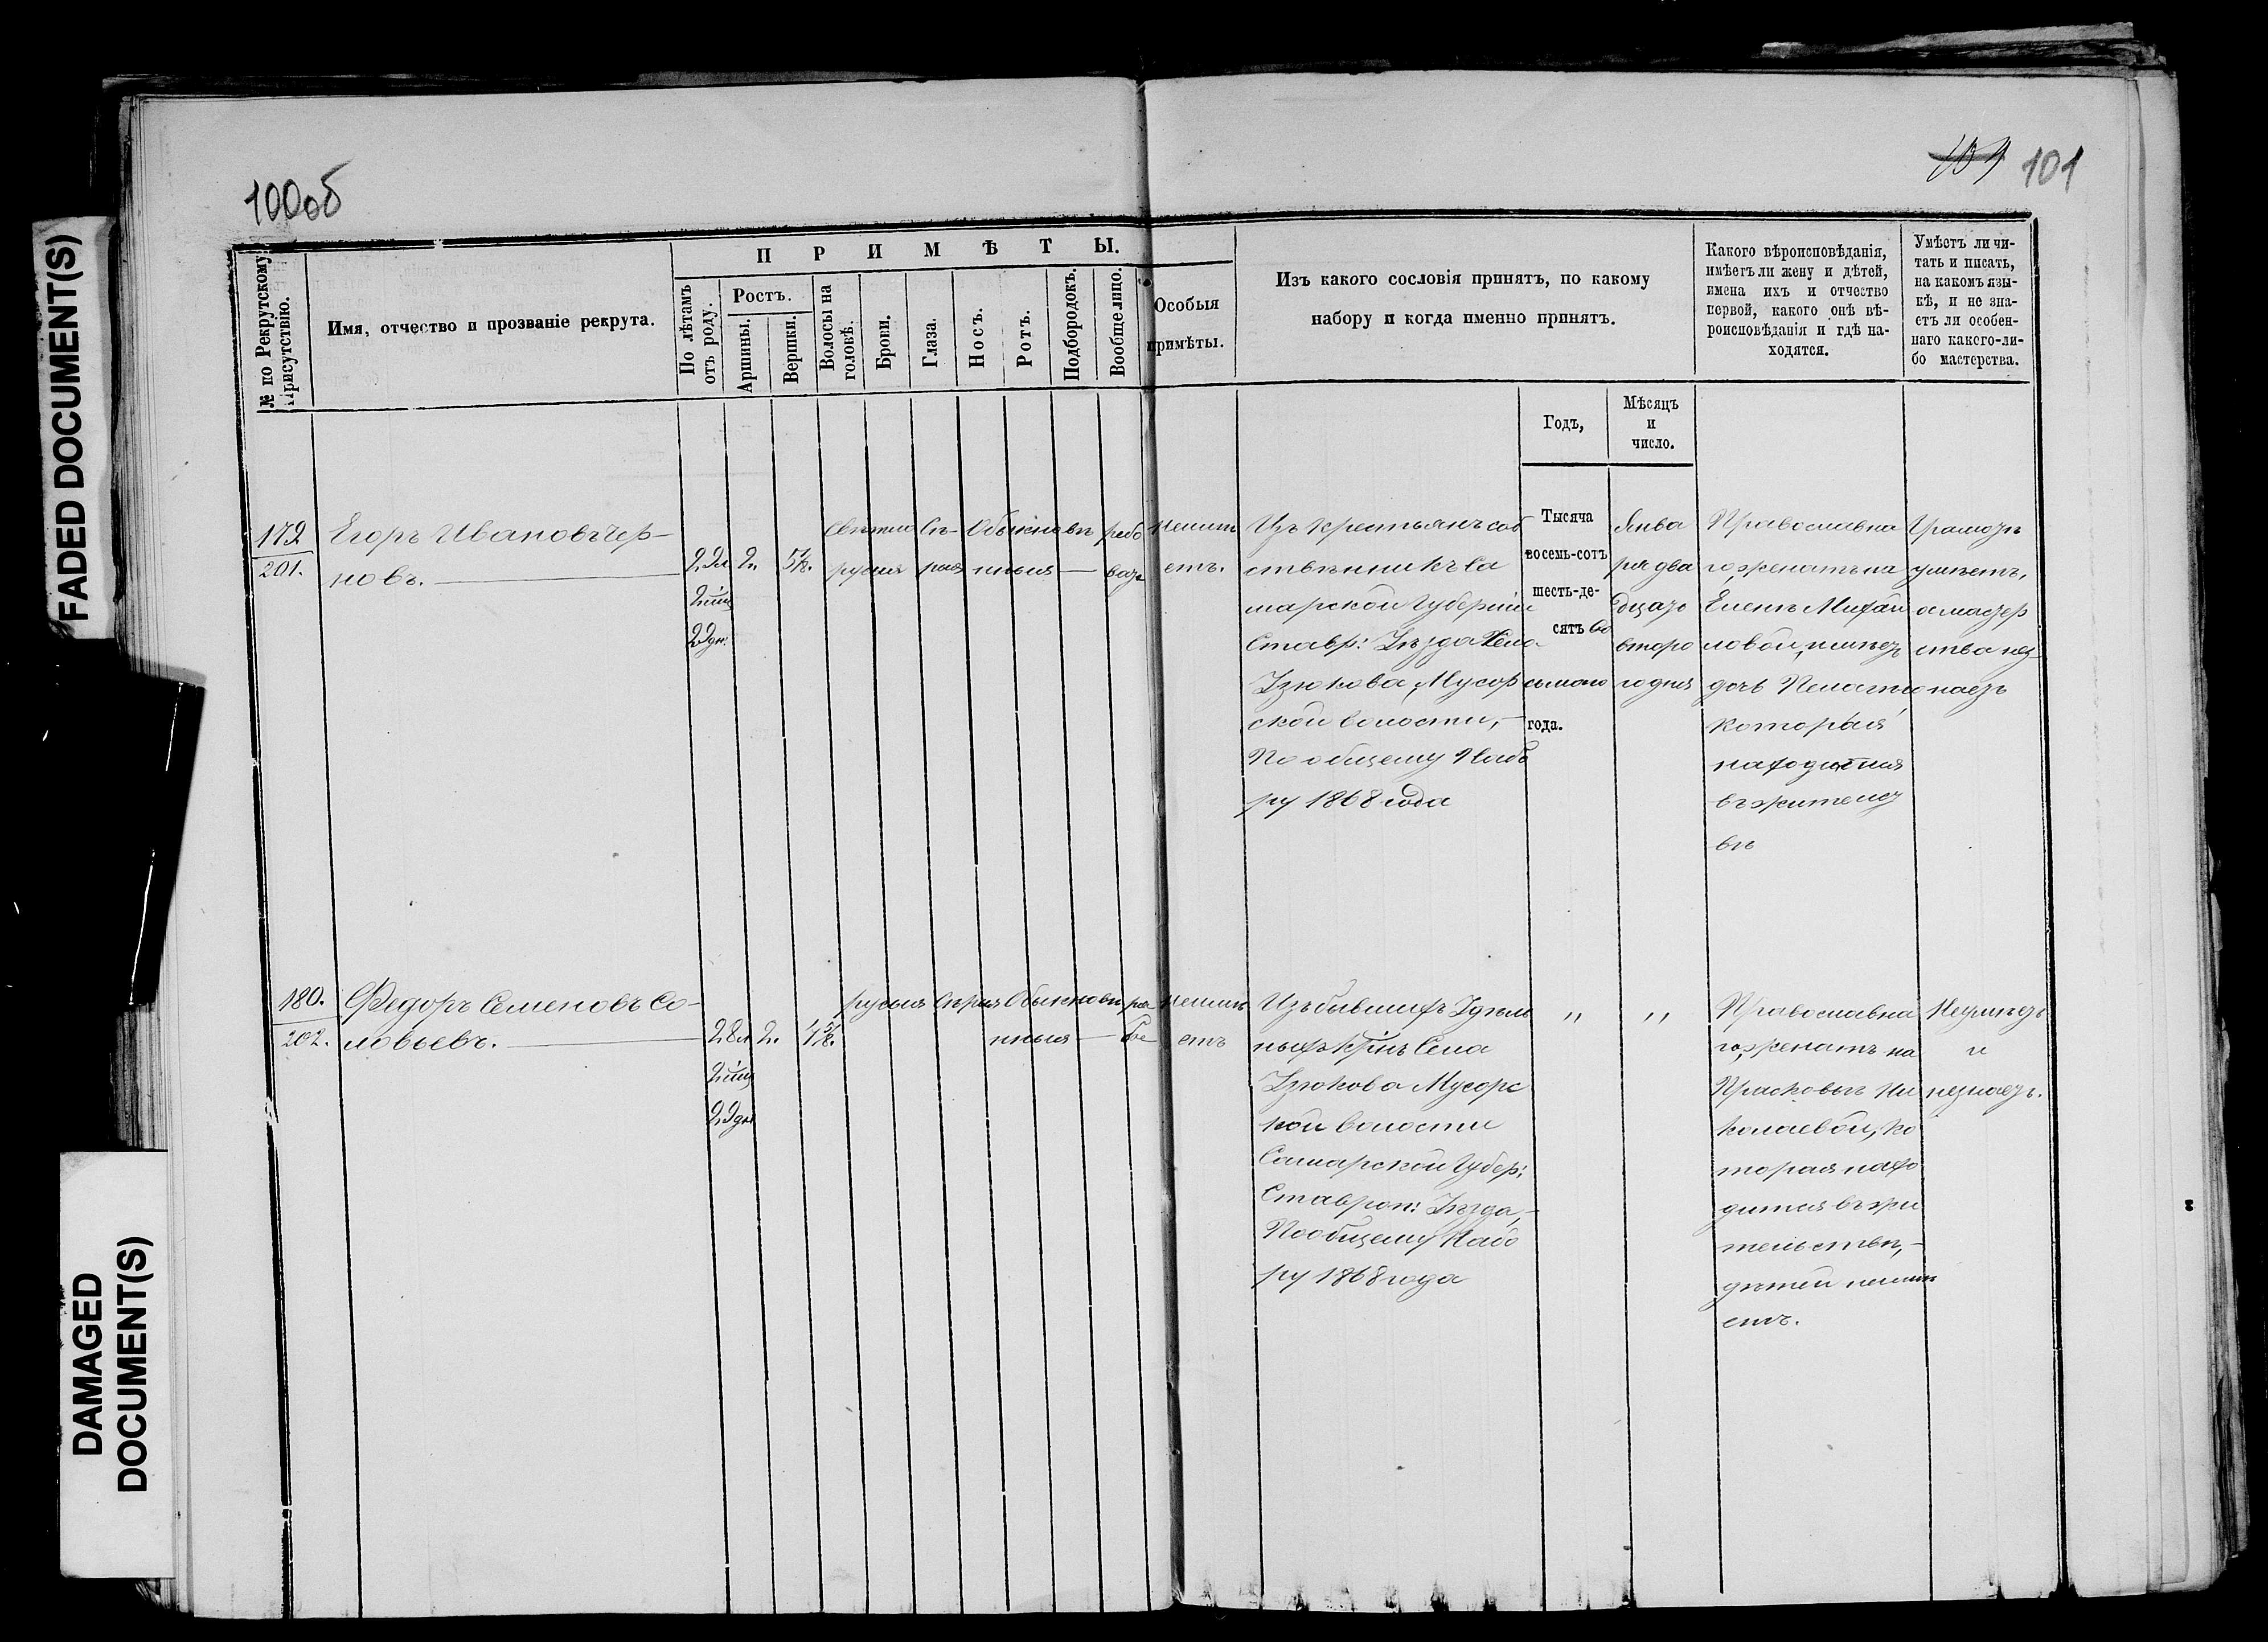 FADED DOCUMENT(S)
DAMAGED
DOCUMENT(S)
100об
101
П Р И М Ѣ Т Ы.
№ по Рекрутскому
Присутствію.
Имя, отчество и прозваніе рекрута.
По лѣтамъ
отъ роду.
Ростъ.
Аршины.
Вершки.
Волосы на
головѣ.
Брови.
Глаза.
Носъ.
Ротъ.
Подбородокъ.
Вообще лицо.
Особыя
примѣты.
Изъ какого сословія принятъ, по какому
набору и когда именно принятъ.
Годъ,
Мѣсяцъ
и
число.
Какого вѣроисповѣданія,
имѣетъ ли жену и дѣтей,
имена ихъ и отчество
первой, какого онѣ вѣ-
роисповѣданія и гдѣ на-
ходятся.
Умѣетъ ли чи-
тать и писать,
на какомъ язы-
кѣ, и не зна-
етъ ли особен-
наго какого-ли-
бо мастерства.
179
201.
Егоръ Ивановъ Чер-
новъ.
2.
свѣтло
русыя
Сѣ-
рыя
Обыкновѣ
нныя
рябо
ватъ
неимѣ
етъ.
Изъ Крестьянъ соб
ственникъ Са
марской Губерніи
Ставр: Уѣзда Села
Узюкова, Мусор
ской волости,
По общему Набо
ру 1868 года
Тысяча
восемь-сотъ
шесть-де-
сятъ во
сьмаго
года.
Янва
ря два
дцато
второ
го дня
Православна
го, женатъ на
Еленѣ Михай
ловой, имѣетъ
дочь Пелагѣю
которыя
находятся
въ жительст
вѣ
Грамотѣ
умѣетъ,
а мастер
ства нез
наетъ
180.
202.
Федоръ Семеновъ Со-
ловьевъ.
2.
русыя
Сѣрыя
Обыкновѣ
нныя
неимѣ
етъ
Изъ бывшихъ Удѣль
ныхъ кр:нъ Села
Узюкова Мусорс
кой волости
Самарской Губер:
Ставроп: Уѣзда,
По общему Набо
ру 1868 года
,,
,,
Православна
го, женатъ на
Прасковьѣ Ни
колаевой, ко
торая нахо
дится въ жи
тельствѣ,
дѣтей неимѣ
етъ.
Неумѣетъ
и
незнаетъ.